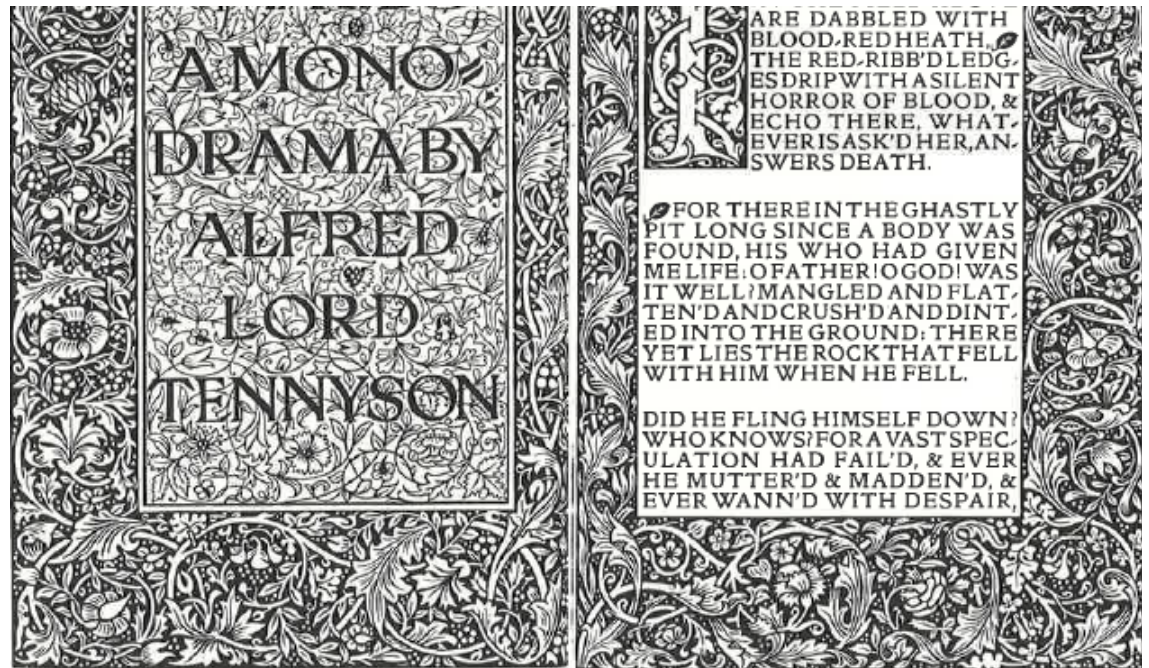 A MONO-
DRAMA BY
ALFRED
LORD
TENNYSON
ARE DABBLED WITH
BLOOD-RED HEATH,
THE RED-RIBB'D LEDG-
ES DRIP WITH A SILENT
HORROR OF BLOOD, &
ECHO THERE, WHAT-
EVER IS ASK'D HER, AN-
SWERS DEATH.
FOR THERE IN THE GHASTLY
PIT LONG SINCE A BODY WAS
FOUND, HIS WHO HAD GIVEN
ME LIFE: O FATHER! O GOD! WAS
IT WELL? MANGLED AND FLAT-
TEN'D AND CRUSH'D AND DINT-
ED INTO THE GROUND: THERE
YET LIES THE ROCK THAT FELL
WITH HIM WHEN HE FELL.
DID HE FLING HIMSELF DOWN?
WHO KNOWS? FOR A VAST SPEC-
ULATION HAD FAIL'D, & EVER
HE MUTTER'D & MADDEN'D, &
EVER WANN'D WITH DESPAIR,